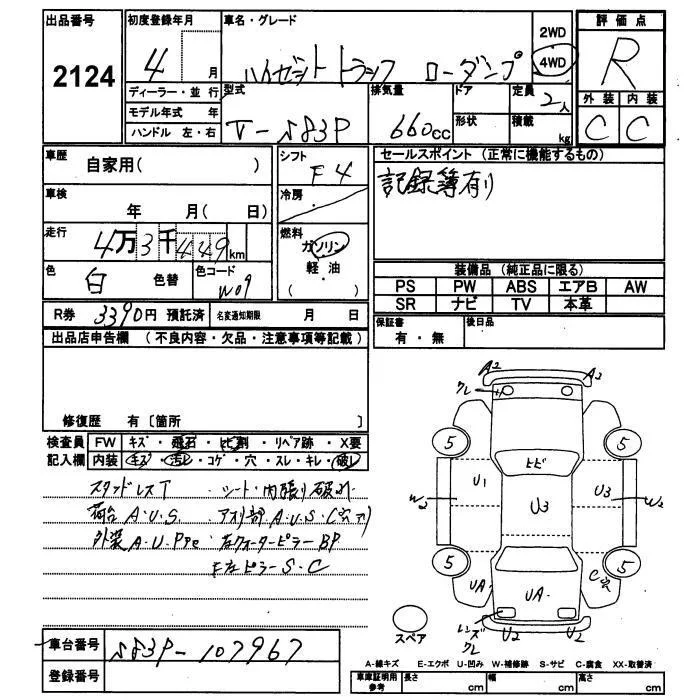 出品番号 初度登録年月 車名・グレード 2WD 評価点
2124 4 月 ハイゼットトラック ローダンプ 4WD R
ディーラー・並行 型式 排気量 ドア 定員 2人 外装 内装
モデル年式 年 V-S83P 660cc 形状 積載 kg C C
ハンドル 左・右
車歴 自家用( ) シフト F4 セールスポイント (正常に機能するもの)
車検 年 月( 日) 冷房 記録簿有り
走行 4万3千449km 燃料 ガソリン
軽油
( )
色 白 色替 色コード W09
装備品 (純正品に限る)
PS PW ABS エアB AW
SR ナビ TV 本革
R券 3390円 預託済 名変通知期限 月 日 保証書 有・無 後日品
出品店申告欄 (不良内容・欠品・注意事項等記載)
修復歴 有〔箇所 〕
検査員 FW キズ・飛石・ヒビ割・リペア跡・X要
記入欄 内装 キズ・汚レ・コゲ・穴・スレ・キレ・破レ
スタッドレスT シート・内張り破れ
荷台A.U.S. アオリ部A.U.S.C穴有り
外装A.U.PPe 右クォーターピラーBP
左ピラーS.C
車台番号 S83P-107967
登録番号
A2 A2
クレ
5 5
ヒビ
U1 U3 U3
W2 W2
5 5
UA UA C穴
レンズクレ U2 U2
スペア
A-線キズ E-エクボ U-凹み W-補修跡 S-サビ C-腐食 XX-取替済
車庫証明用参考 長さ cm 幅 cm 高さ cm